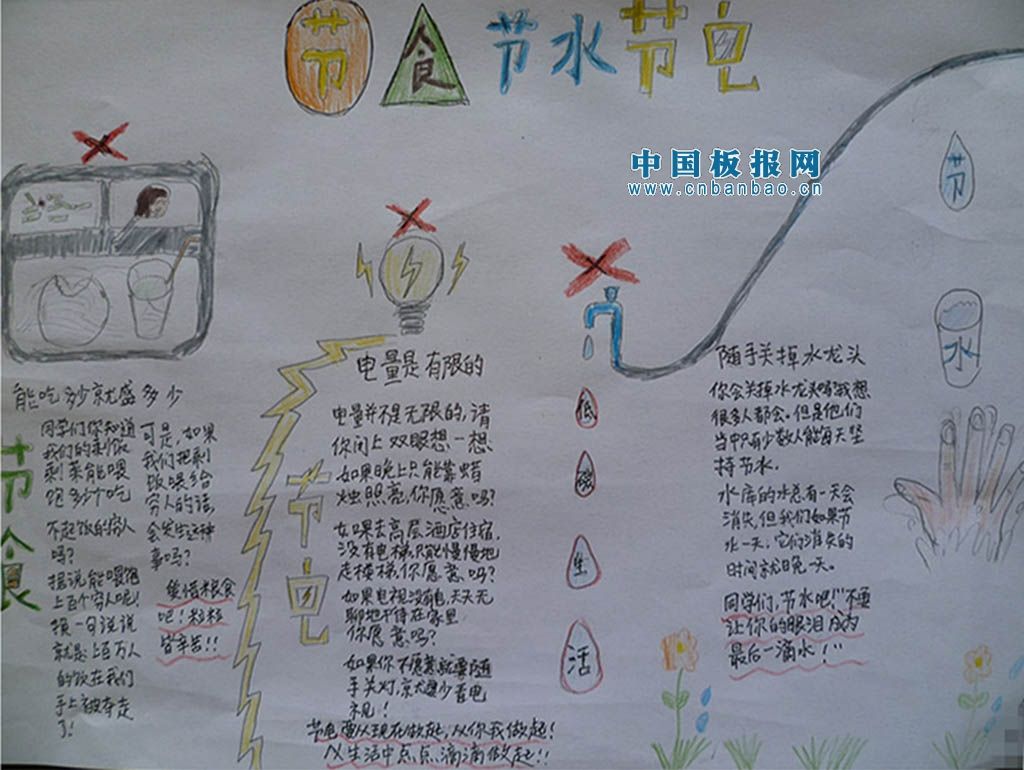 节食节水节电
中国板报网
www.cnbanbao.cn
能吃多少就盛多少
节食
同学们你知道
我们的剩饭
剩菜能喂
饱多少个吃
不起饭的穷人
吗?
据说能喂饱
上百个穷人呢!
换一句说说
就是上百万人
的饭在我们
手上被夺走
了!
可是,如果
我们把剩
饭喂给
穷人的话,
会发生这种
事吗?
爱惜粮食
吧!粒粒
皆辛苦!!
电量是有限的
节电
电量并不是无限的,请
你闭上双眼想一想
如果晚上只能靠蜡
烛照亮,你愿意吗?
如果去高层酒店住宿,
没有电梯,只能慢慢地
走楼梯,你愿意吗?
如果电视没有电,天天无
聊地干待在家里
你愿意吗?
如果你不愿意就要随
手关灯,京尤少看电
视!
节电要从现在做起,从你我做起!
从生活中点点滴滴做起!!
低
碳
生
活
随手关掉水龙头
你会关掉水龙头吗?我想
很多人都会,但是他们
当中只有少数人能每天坚
持节水。
水库的水总有一天会
消失,但我们如果节
水一天,它们消失的
时间就晚一天。
同学们,节水吧!"不要
让你的眼泪成为
最后一滴水!"
节
水